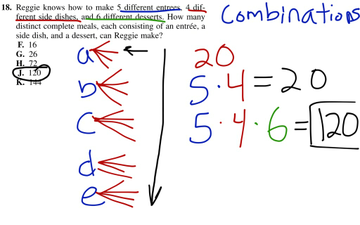 18. Reggie knows how to make 5 different entrees, 4 dif-
ferent side dishes, and 6 different desserts. How many
distinct complete meals, each consisting of an entrée, a
side dish, and a dessert, can Reggie make?
F. 16
G. 26
H. 72
J. 120
K. 144
Combinations
a
b
c
d
e
20
5 · 4 = 20
5 · 4 · 6 = 120